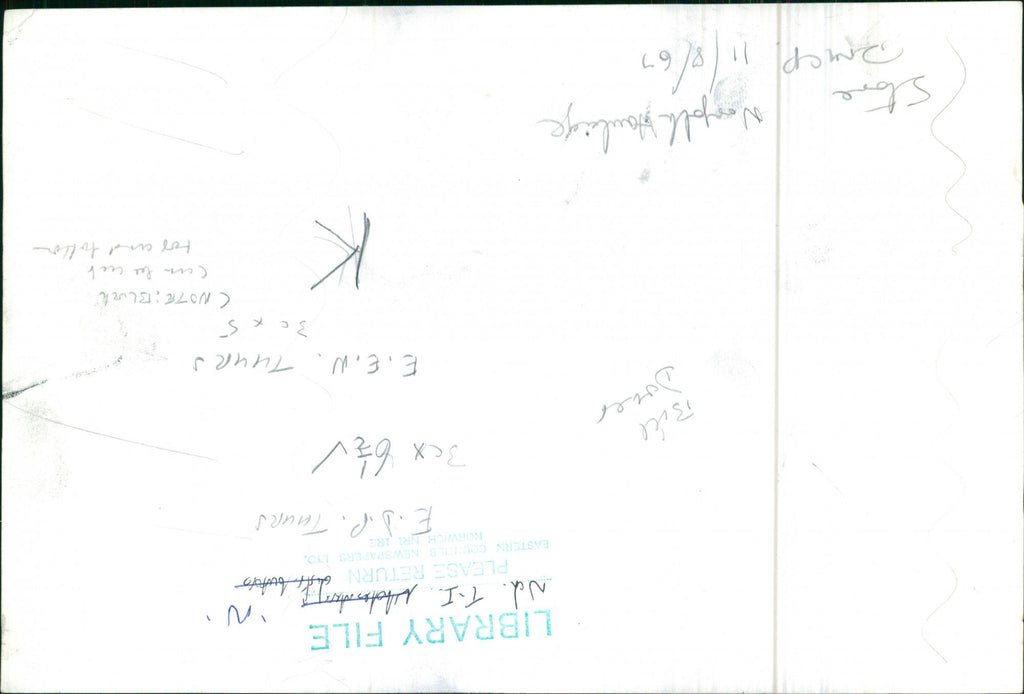 LIBRARY FILE
Nd. T.I.
'N'.
PLEASE RETURN
EASTERN COUNTIES NEWSPAPERS LTD.
NORWICH NR1 1RE
E.D.P. THURS
3c x 6½ V
E.E.N. THURS
3c x 5
(NOTE: Block
can be cut
top and bottom
K
Bill
Norfolk Haulage
Store
11/8/67